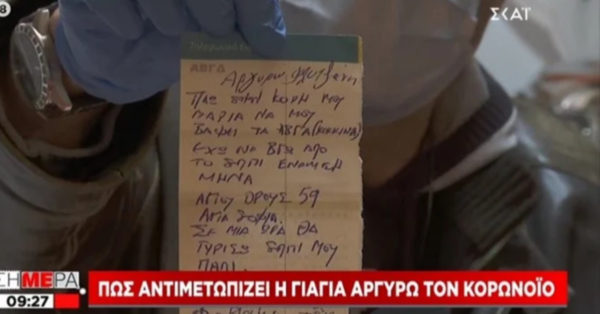 8
ΣΚΑΪ
ΑΒΓΑ
Αργυρω
ΠΑΩ ΣΠΙΤΙ ΚΟΡΗ ΜΟΥ
ΜΑΡΙΑ ΝΑ ΜΟΥ
ΒΑΨΕΙ ΤΑ ΑΒΓΑ (ΚΟΚΚΙΝΑ)
ΕΧΩ ΝΑ ΒΓΩ ΑΠΟ
ΤΟ ΣΠΙΤΙ ΕΝΑΜΙΣΗ
ΜΗΝΑ
ΑΓΙΟΥ ΟΡΟΥΣ 59
ΑΓΙΑ ΣΟΦΙΑ.
ΣΕ ΜΙΑ ΩΡΑ ΘΑ
ΓΥΡΙΣΩ ΣΠΙΤΙ ΜΟΥ
ΠΑΛΙ.
ΣΗΜΕΡΑ
09:27
ΠΩΣ ΑΝΤΙΜΕΤΩΠΙΖΕΙ Η ΓΙΑΓΙΑ ΑΡΓΥΡΩ ΤΟΝ ΚΟΡΩΝΟΪΟ